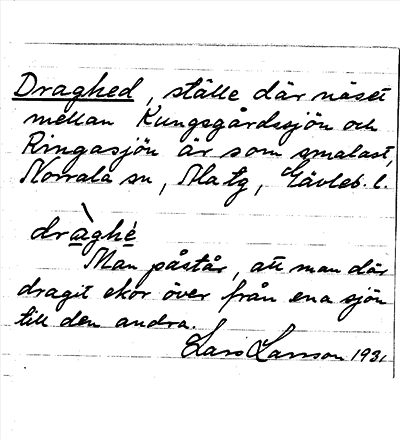 Draghed, ställe där näset
mellan Kungsgårdssjön och
Ringasjön är som smalast,
Norrala sn, Ala tg, Gävleb. l.
dràghé
Man påstår, att man där
dragit ekor över från ena sjön
till den andra.
Lars Larsson 1931